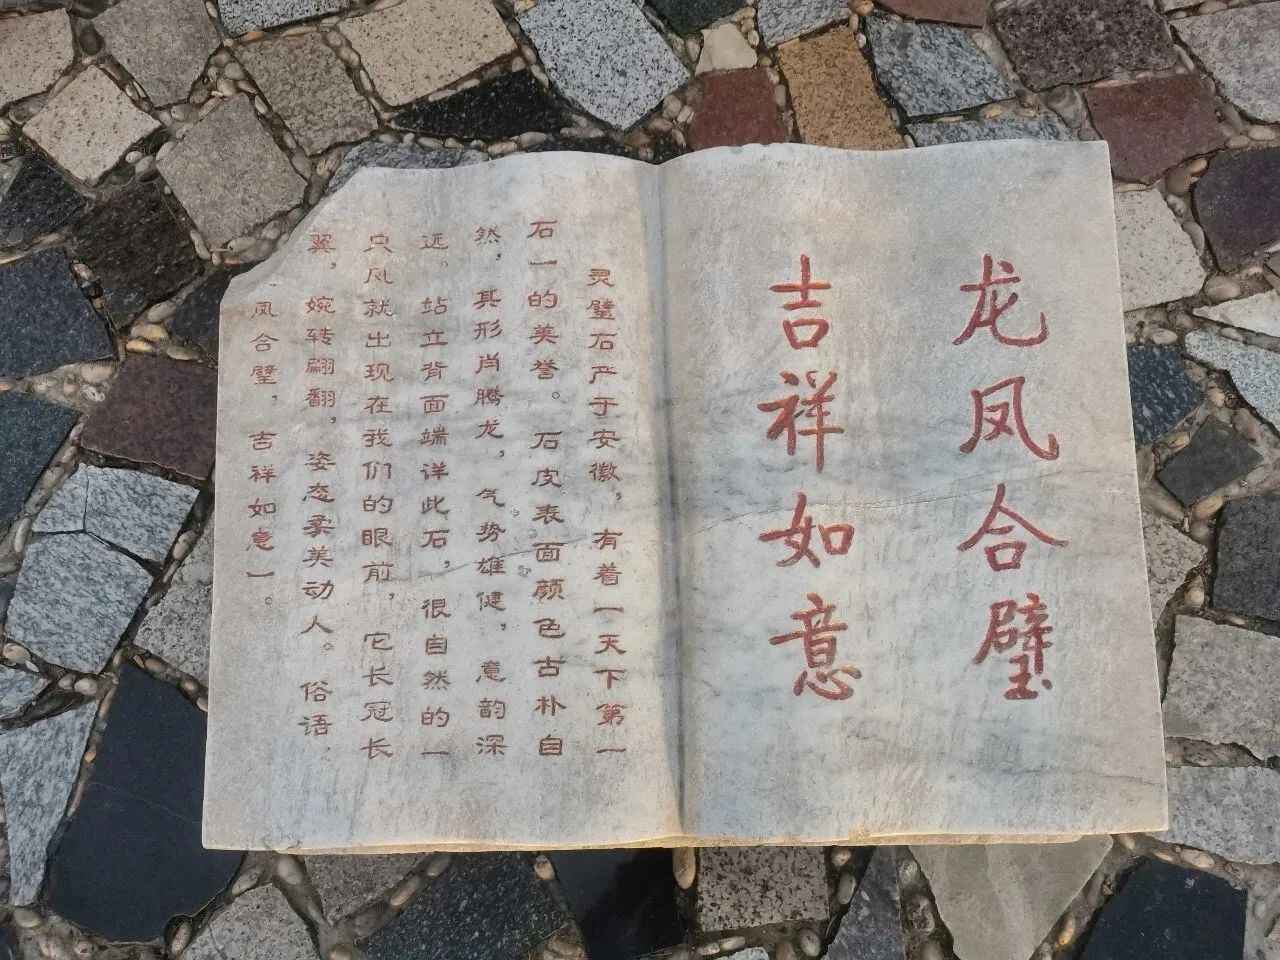 龙凤合璧
吉祥如意
灵璧石产于安徽，有着“天下第一
石”的美誉。石皮表面颜色古朴自
然，其形肖腾龙，气势雄健，意韵深
远。站立背面端详此石，很自然的一
只凤就出现在我们的眼前，它长冠长
翼，婉转翩翻，姿态柔美动人。俗语：
凤合璧，吉祥如意”。